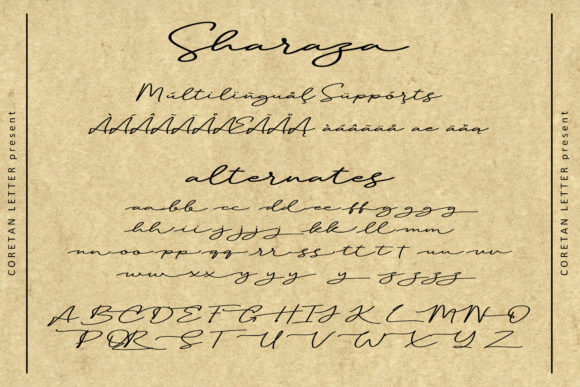 CORETAN LETTER present
Sharaza
Múltilinguãl Süppörts
ÀÁÂÃÄÅÆĀĂĄ àáâãäå ae āăą
alternates
aabb cc dd ee ff gggg
hh ii j jjj kk ll mm
nn oo pp qq rr ss tt t t uu vv
ww xx y yy y zzzz
A B C D E F G H I J K L M N O
P Q R S T U V W X Y Z
CORETAN LETTER present